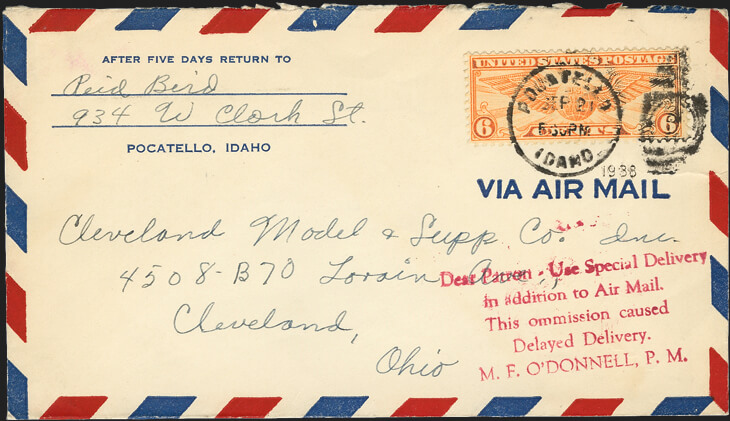 AFTER FIVE DAYS RETURN TO
Reid Bird
934 W Clark St.
POCATELLO, IDAHO
UNITED STATES POSTAGE
6 CENTS 6
POCATELLO
SEP 21
5:30 PM
IDAHO
1938
VIA AIR MAIL
Cleveland Model & Supp Co. Inc.
4508-B70 Lorain Ave.,
Cleveland,
Ohio
Dear Patron - Use Special Delivery
in addition to Air Mail.
This ommission caused
Delayed Delivery.
M. F. O'DONNELL, P. M.